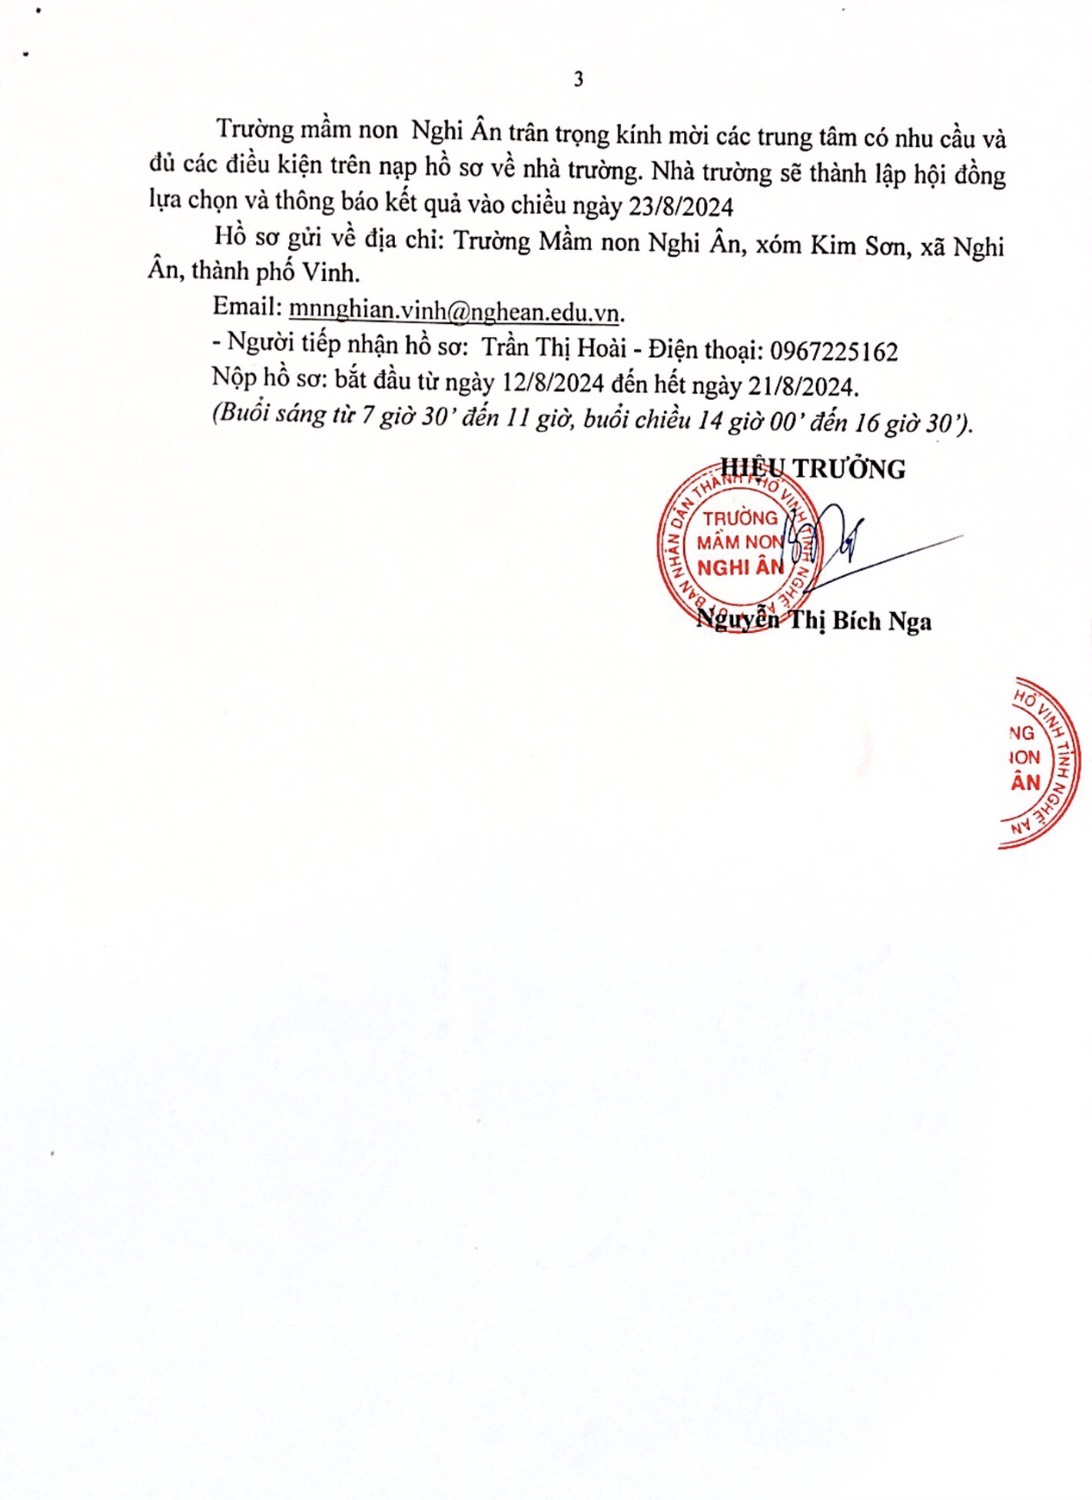 3
Trường mầm non Nghi Ân trân trọng kính mời các trung tâm có nhu cầu và
đủ các điều kiện trên nạp hồ sơ về nhà trường. Nhà trường sẽ thành lập hội đồng
lựa chọn và thông báo kết quả vào chiều ngày 23/8/2024
Hồ sơ gửi về địa chỉ: Trường Mầm non Nghi Ân, xóm Kim Sơn, xã Nghi
Ân, thành phố Vinh.
Email: mnnghian.vinh@nghean.edu.vn.
- Người tiếp nhận hồ sơ: Trần Thị Hoài - Điện thoại: 0967225162
Nộp hồ sơ: bắt đầu từ ngày 12/8/2024 đến hết ngày 21/8/2024.
(Buổi sáng từ 7 giờ 30’ đến 11 giờ, buổi chiều 14 giờ 00’ đến 16 giờ 30’).
HIỆU TRƯỞNG
ỦY BAN NHÂN DÂN THÀNH PHỐ VINH TỈNH NGHỆ AN
TRƯỜNG
MẦM NON
NGHI ÂN
Nguyễn Thị Bích Nga
HỐ VINH TỈNH NGHỆ AN
NG
NON
ÂN